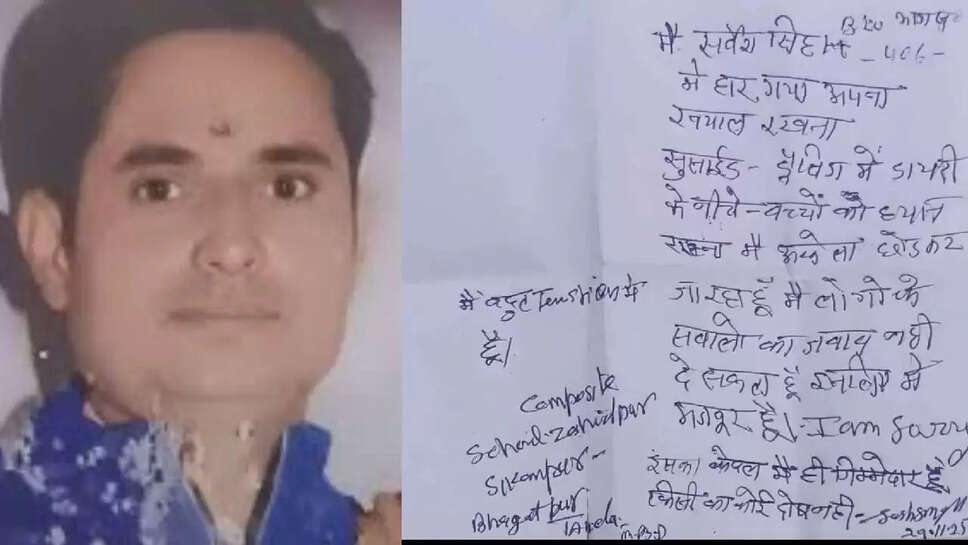 मैं सर्वेश सिंह
मैं हार गया अपना
ख्याल रखना
सुसाईड - में डायरी
के नीचे - बच्चों को ध्यान
रखना मैं अकेला छोडकर
जा रहा हूँ मै लोगो के
सवालो का जवाब नही
दे सकता हूँ इसलिए मैं
मजबूर हूँ। - I am Sorry
इसका केवल मै ही जिम्मेदार हूँ
किसी का कोई दोष नही -
29/11/25
मैं बहुत Tenshion में
हूँ।
Composite
School - Zahidpur
Sikampur -
Bhagatpur